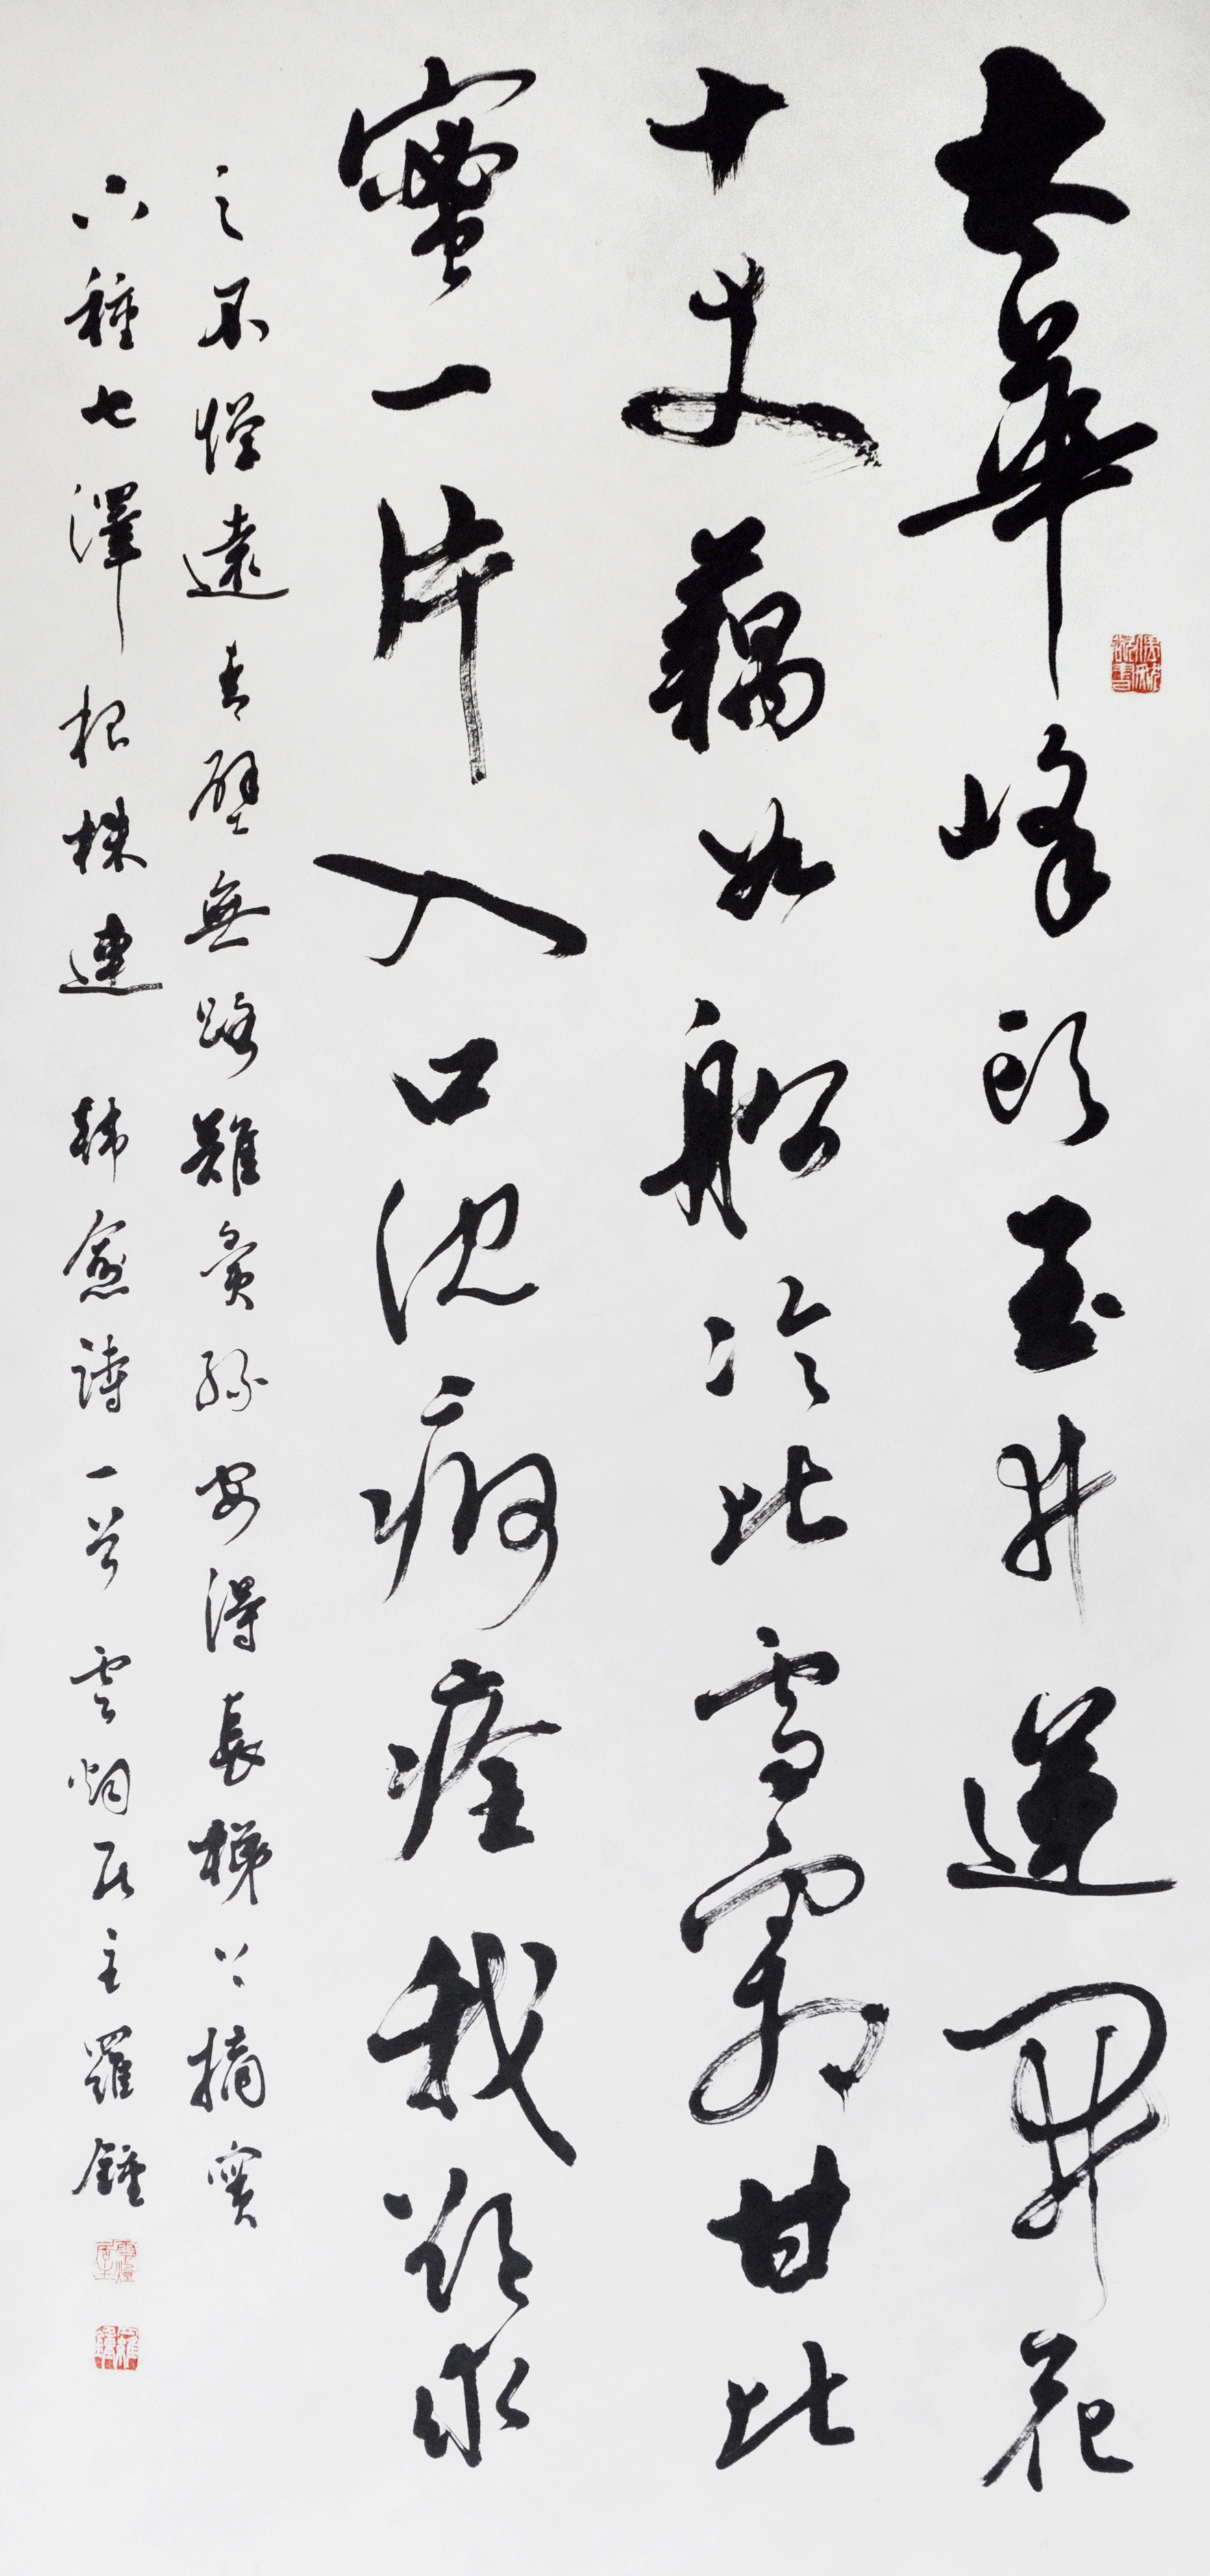 太華峰頭玉井蓮開花
十丈藕如船冷比雪霜甘比
蜜一片入口沈痾痊我欲求
之不憚遠青壁無路難夤緣安得長梯上摘實
下種七澤根株連 韓愈詩一首 雲烟居主羅鍾